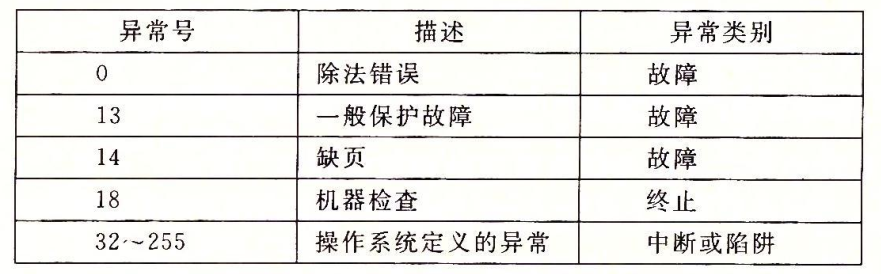 异常号 描述 异常类别
0 除法错误 故障
13 一般保护故障 故障
14 缺页 故障
18 机器检查 终止
32~255 操作系统定义的异常 中断或陷阱